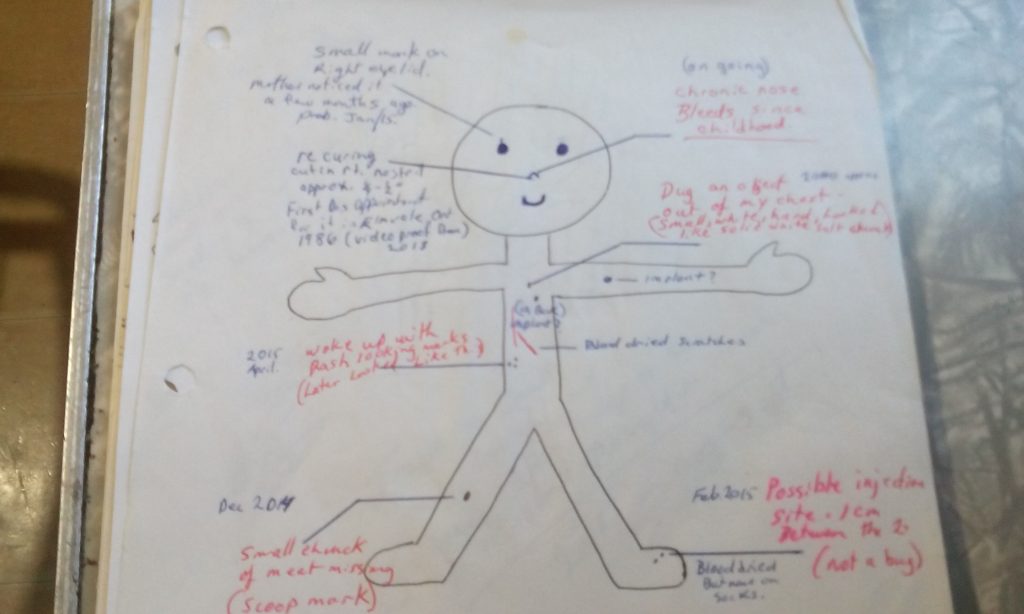 Small mark on
Right eyelid.
mother noticed it
a few months ago
prob. Jan/15.
(on going)
chronic nose
Bleeds since
childhood
re curing
cut in rt. nostril
approx.
First Drs appointment
for it in
1986 (video proof
2013
Dug an object
out of my chest.
(small, white, hard, looked
like solid white salt chunk)
implant?
(in Back)
implant?
Blood dried scratches
2015
April.
woke up with
Rash looking marks
(Later Looked Like this)
Dec 2014
Small chunk
of meat missing
(scoop mark)
Feb 2015
Possible injection
site . 1cm
Between the 2
(not a bug)
Blood dried
But none on
socks.